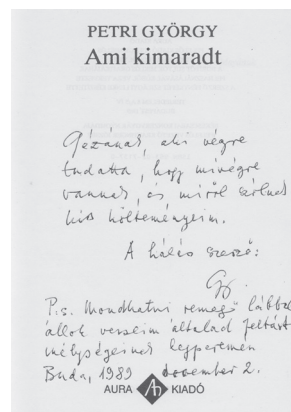 PETRI GYÖRGY
Ami kimaradt
Gézának, aki végre
tudatta, hogy mivégre
vannak, és miről szólnak
kis költeményeim.
A hálás szerző:
Gy.
P.s. Mondhatni remegő lábbal
állok verseim általad feltárt
mélységeinek legperemén
Buda, 1989 november 2.
AURA KIADÓ